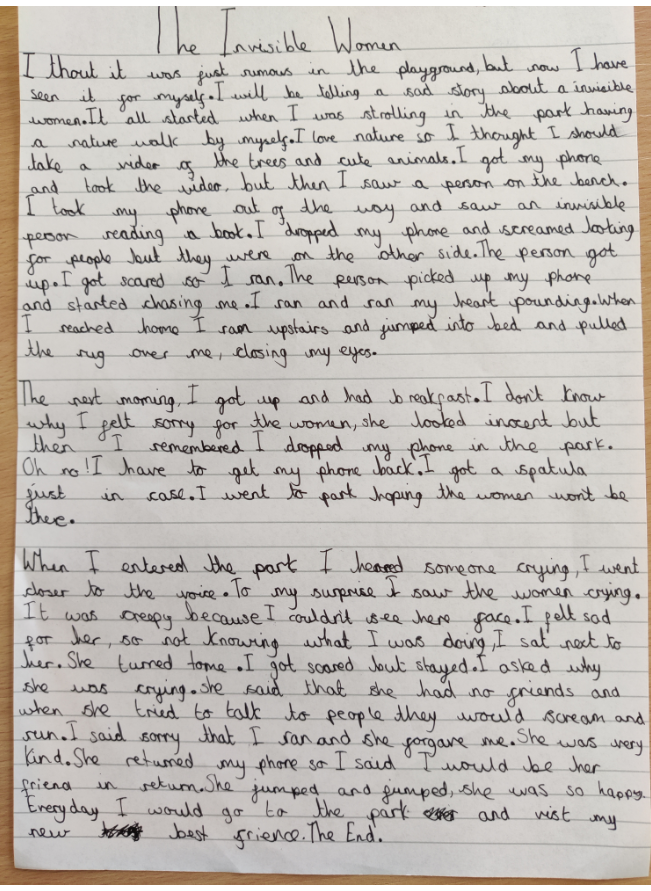 The Invisible Women
I thout it was just rumous in the playground, but now I have
seen it for myself. I will be telling a sad story about a invisible
women. It all started when I was strolling in the park having
a nature walk by myself. I love nature so I thought I should
take a video of the trees and cute animals. I got my phone
and took the video, but then I saw a person on the bench.
I took my phone out of the way and saw an invisible
person reading a book. I dropped my phone and screamed looking
for people but they were on the other side. The person got
up. I got scared so I ran. The person picked up my phone
and started chasing me. I ran and ran my heart pounding. When
I reached home I ram upstairs and jumped into bed and pulled
the rug over me, closing my eyes.
The next morning, I got up and had breakfast. I don't know
why I felt sorry for the women, she looked inocent but
then I remembered I dropped my phone in the park.
Oh no! I have to get my phone back. I got a spatula
just in case. I went to park hoping the women won't be
there.
When I entered the park I heared someone crying, I went
closer to the voice. To my surprise I saw the women crying.
It was creepy because I couldn't see here face. I felt sad
for her, so not knowing what I was doing, I sat next to
her. She turned tome. I got scared but stayed. I asked why
she was crying. she said that she had no friends and
when she tried to talk to people they would scream and
run. I said sorry that I ran and she forgave me. She was very
kind. She returned my phone so I said I would be her
friend in return. She jumped and jumped, she was so happy.
Everyday I would go to the park and visit my
new best frience. The End.